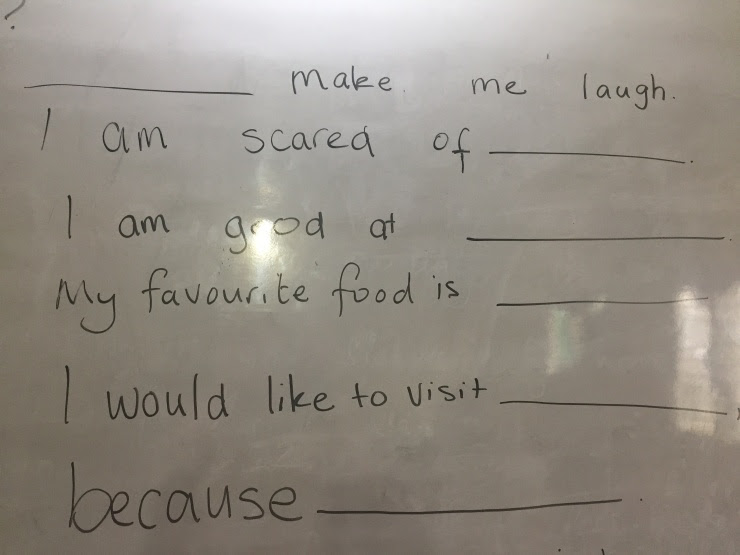 ?
__________ make me laugh.
I am scared of __________.
I am good at __________.
My favourite food is __________
I would like to visit __________,
because __________.